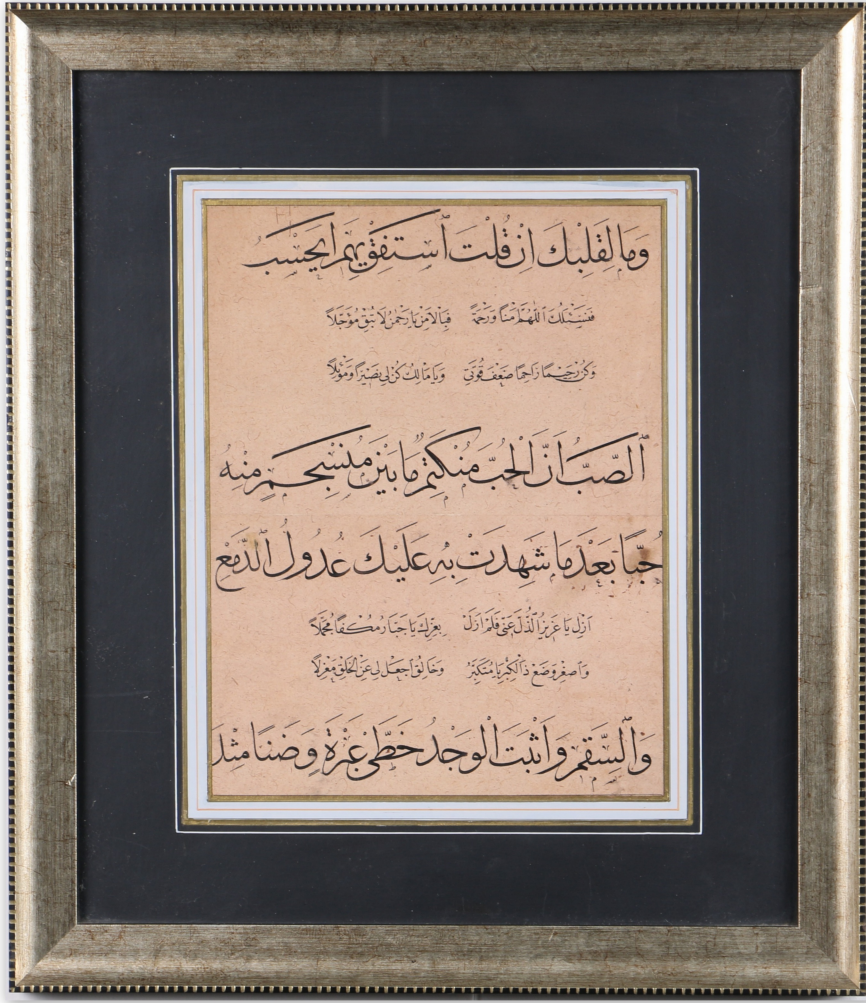 وَمَا لِقَلْبِكَ اِنْ قُلْتَ ٱسْتَفِقْ يَهِمِ اَيَحْسَبُ
فَنَسْئَلُكَ ٱللّٰهُمَّ مَنًّا وَرَحْمَةً فَبِالْاَمْنِ يَا رَحْمٰنُ لَا تُبْقِ مُوْجَلًا
وَكُنْ رَحِيمًا رَاحِمًا ضَعْفَ قُوَّتِى وَيَا مَالِكُ كُنْ لِى نَصِيرًا وَمَوْئِلًا
ٱلصَّبُّ اَنَّ الْحُبَّ مُنْكَتِمٌ مَا بَيْنَ مُنْسَجِمٍ مِنْهُ
حُبًّا بَعْدَ مَا شَهِدَتْ بِهِ عَلَيْكَ عُدُولُ ٱلدَّمْعِ
اَزِلْ يَا عَزِيزُ ٱلذُّلَّ عَنِّى فَلَمْ اَزَلْ بِعِزِّكَ يَا جَبَّارُ
وَاَصْغِرْ وَضَعْ ذَا الْكِبْرِ يَا مُتَكَبِّرُ وَخَالِقُ اجْعَلْ لِى عَنِ الْخَلْقِ مَعْزِلًا
وَٱلسَّقَمِ وَاَثْبَتَ الْوَجْدُ خَطَّىْ عَبْرَةٍ وَضَنًا مِثْلَ